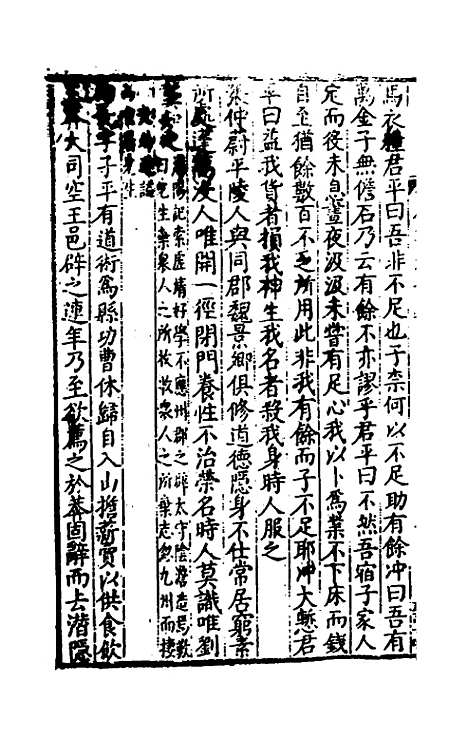 馬衣糧君平曰吾非不足也子柰何以不足助有餘冲曰吾有
萬金子無儋石乃云有餘不亦謬乎君平曰不然吾宿子家人
定而後未息晝夜汲汲未甞有足心我以卜爲業不下床而錢
自至猶餘數百不乏所用此非我有餘而子不足耶冲大慙君
平曰益我貨者損我神生我名者殺我身時人服之
張仲蔚平陵人與同郡魏景卿俱修道德隱身不仕常居窮素
所處蓬蒿没人唯開一徑閉門養性不治榮名時人莫識唯劉
記索虛靖好學不應州郡之辟太守陰澹造焉歎
曰先生棄衆人之所收收衆人之所棄志忽九州而棲
字子平有道術爲縣功曹休歸自入山擔薪賣以供食飲
大司空王邑辟之連年乃至欲薦之於莽固辭而去潛隱